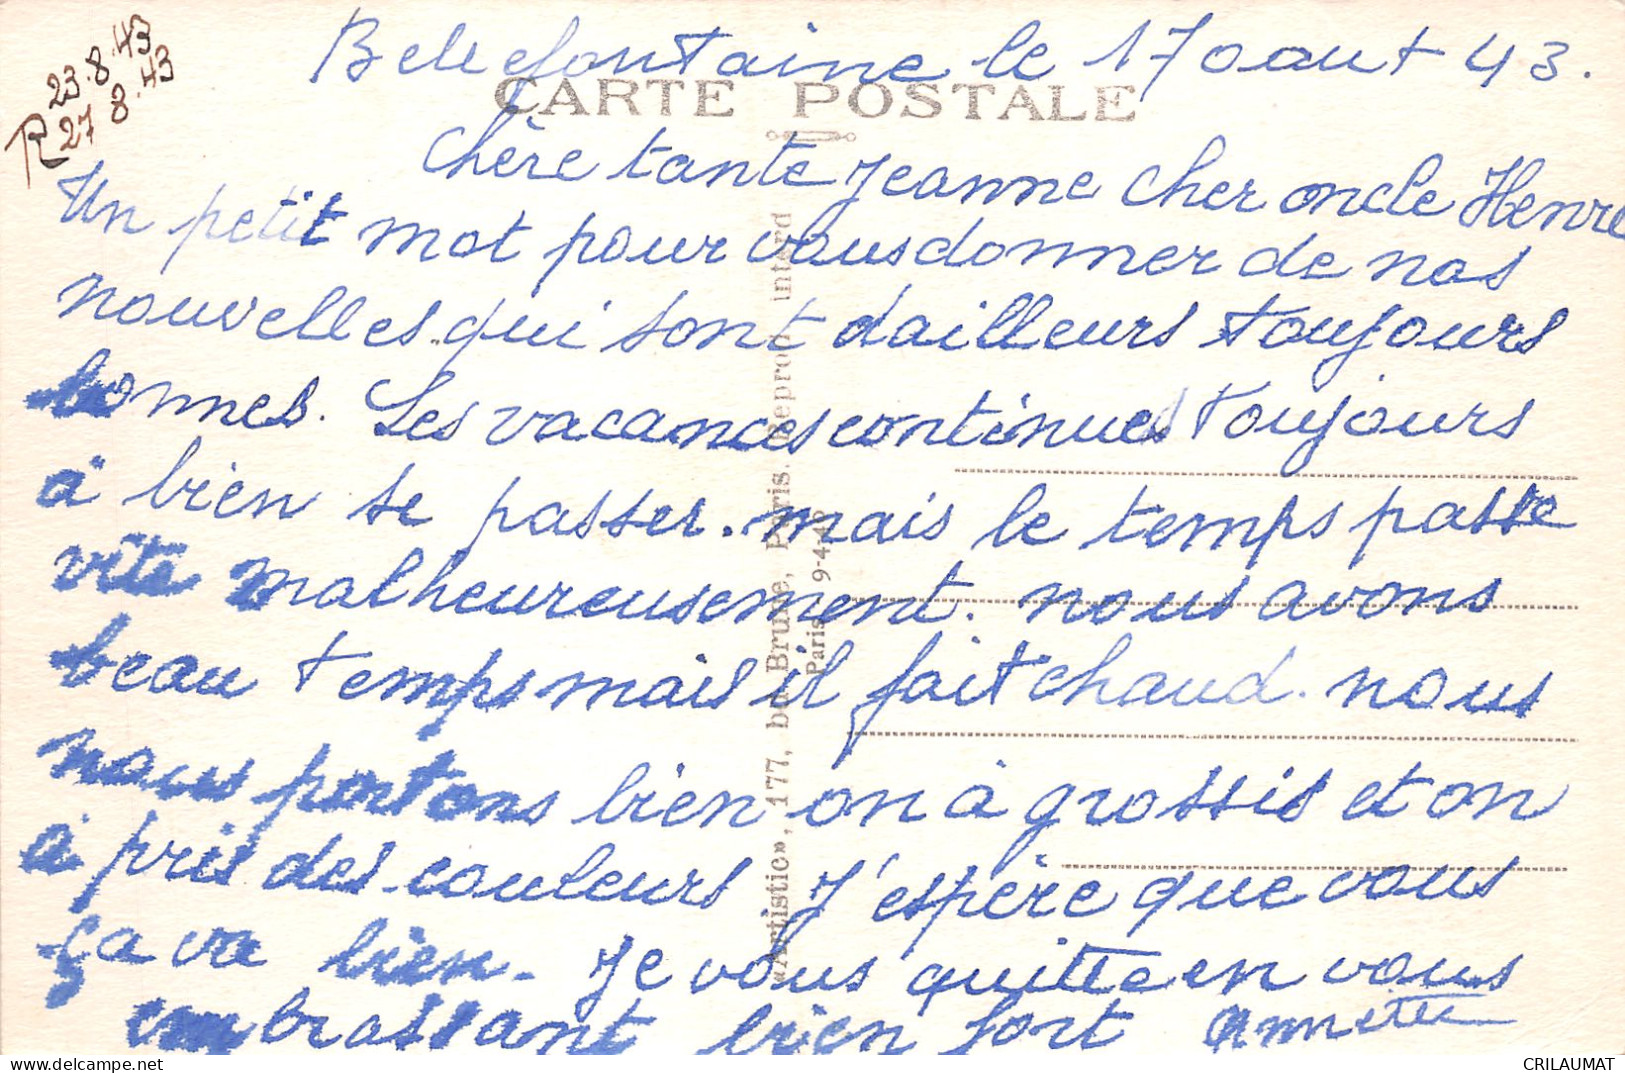 23.8.43
R 27 8.43
Bellefontaine le 17 oaut 43.
CARTE POSTALE
Chère tante Jeanne cher oncle Henri
Un petit mot pour vous donner de nos
nouvelles qui sont dailleurs toujours
bonnes. Les vacances continues toujours
à bien se passer. mais le temps passe
vite malheureusement. nous avons
beau temps mais il fait chaud. nous
nous portons bien on à grossis et on
à pris des couleurs J'espère que vous
ça va bien. Je vous quitte en vous
embrassant bien fort Annette
«Artistic», 177, bd Brune, Paris. Reprod. interd
Paris 9-4-4
CRILAUMAT